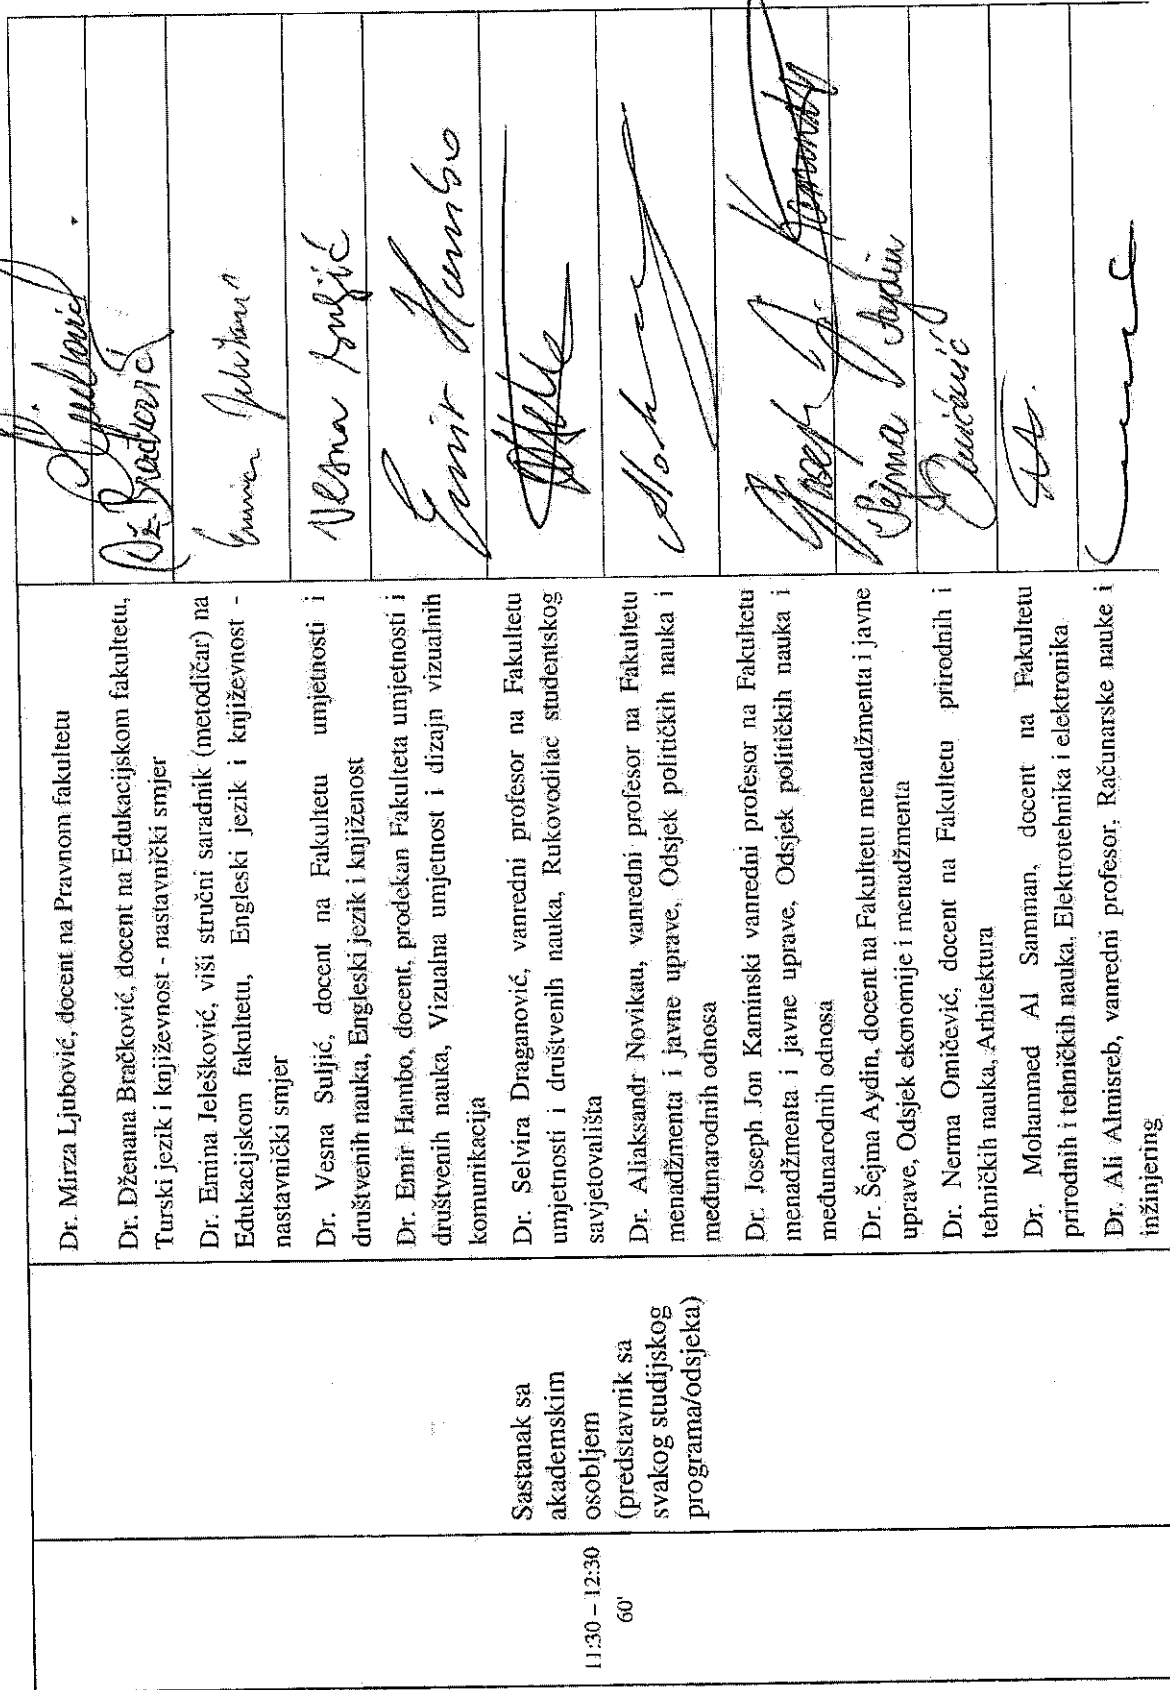 11:30 – 12:30
60'
Sastanak sa
akademskim
osobljem
(predstavnik sa
svakog studijskog
programa/odsjeka)
Dr. Mirza Ljubović, docent na Pravnom fakultetu
Dr. Dženana Bračković, docent na Edukacijskom fakultetu,
Turski jezik i književnost - nastavnički smjer
Dr. Emina Jelešković, viši stručni saradnik (metodičar) na
Edukacijskom fakultetu, Engleski jezik i književnost -
nastavnički smjer
Dr. Vesna Suljić, docent na Fakultetu umjetnosti i
društvenih nauka, Engleski jezik i knjiženost
Dr. Emir Hambo, docent, prodekan Fakulteta umjetnosti i
društvenih nauka, Vizualna umjetnost i dizajn vizualnih
komunikacija
Dr. Selvira Draganović, vanredni profesor na Fakultetu
umjetnosti i društvenih nauka, Rukovodilac studentskog
savjetovališta
Dr. Aliaksandr Novikau, vanredni profesor na Fakultetu
menadžmenta i javne uprave, Odsjek političkih nauka i
međunarodnih odnosa
Dr. Joseph Jon Kaminski vanredni profesor na Fakultetu
menadžmenta i javne uprave, Odsjek političkih nauka i
međunarodnih odnosa
Dr. Šejma Aydin, docent na Fakultetu menadžmenta i javne
uprave, Odsjek ekonomije i menadžmenta
Dr. Nerma Omičević, docent na Fakultetu prirodnih i
tehničkih nauka, Arhitektura
Dr. Mohammed Al Samman, docent na Fakultetu
prirodnih i tehničkih nauka, Elektrotehnika i elektronika
Dr. Ali Almisreb, vanredni profesor, Računarske nauke i
inžinjering
Dž. Bračković
Vesna Suljić
Emir Hambo
Šejma Aydin